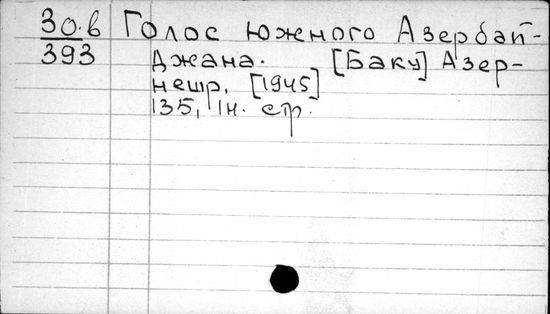 30.в Голос южного Азербай-
393 джана. [Баку] Азер-
нешр, [1945]
135, 1н. стр.